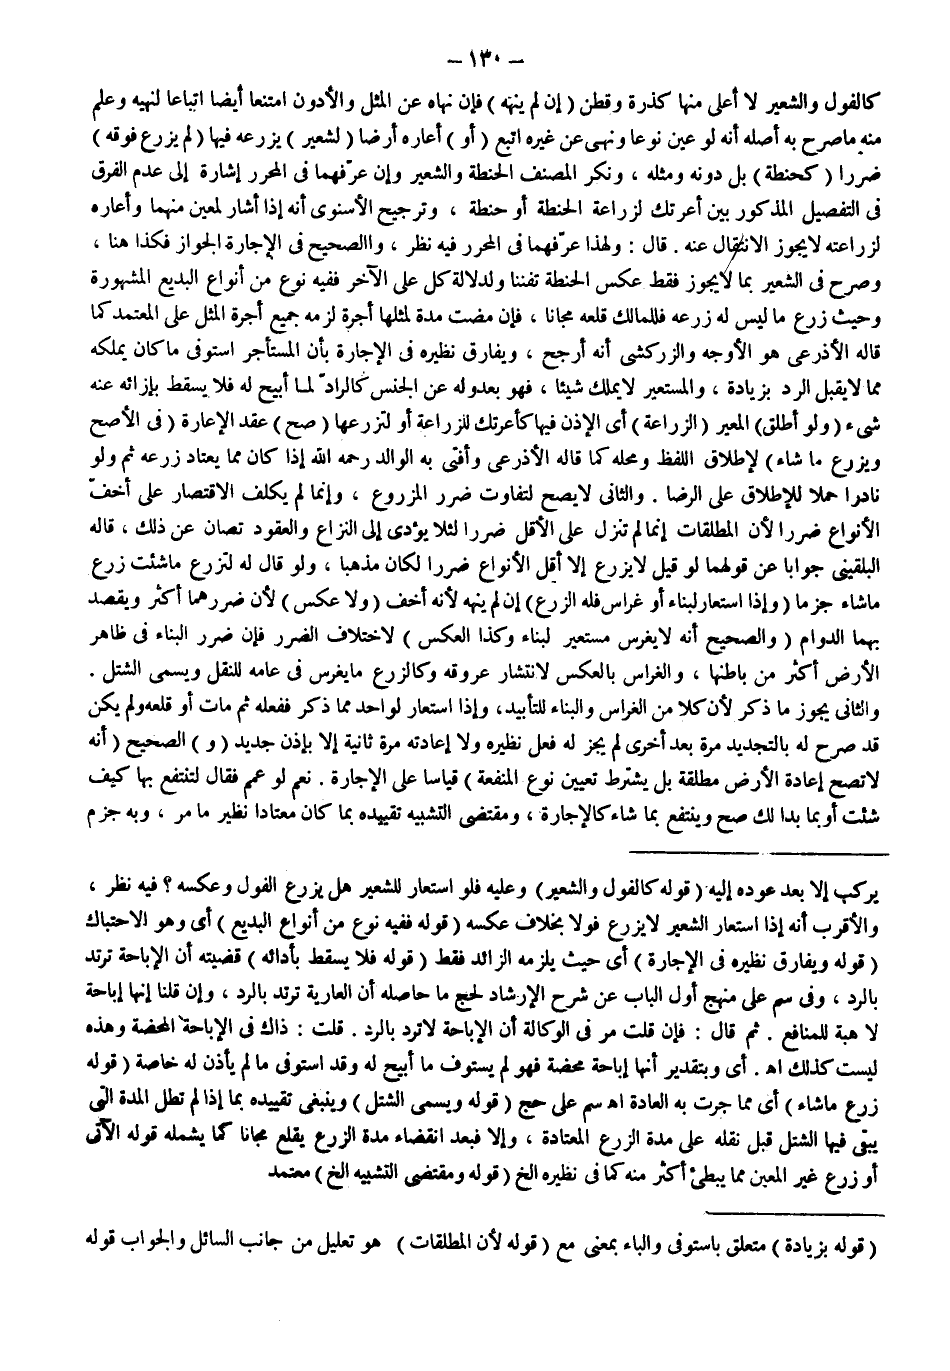 – ١٣٠ –
كالفول والشعير لا أعلى منها كذرة وقطن ( إن لم ينهه ) فإن نهاه عن المثل والأدون امتنعا أيضا اتباعا لنهيه وعلم
منه ماصرح به أصله أنه لو عين نوعا ونهى عن غيره اتبع ( أو ) أعاره أرضا ( لشعير ) يزرعه فيها ( لم يزرع فوقه )
ضررا ( كحنطة ) بل دونه ومثله ، ونكر المصنف الحنطة والشعير وإن عرّفهما فى المحرر إشارة إلى عدم الفرق
فى التفصيل المذكور بين أعرتك لزراعة الحنطة أو حنطة ، وترجيح الأسنوى أنه إذا أشار لمعين منهما وأعاره
لزراعته لايجوز الانتقال عنه . قال : ولهذا عرّفهما فى المحرر فيه نظر ، واالصحيح فى الإجارة الجواز فكذا هنا ،
وصرح فى الشعير بما لايجوز فقط عكس الحنطة تفننا ولدلالة كل على الآخر ففيه نوع من أنواع البديع المشهورة
وحيث زرع ما ليس له زرعه فللمالك قلعه مجانا ، فإن مضت مدة لمثلها أجرة لزمه جميع أجرة المثل على المعتمد كما
قاله الأذرعى هو الأوجه والزركشى أنه أرجح ، ويفارق نظيره فى الإجارة بأن المستأجر استوفى ماكان يملكه
مما لايقبل الرد بزيادة ، والمستعير لايملك شيئا ، فهو بعدوله عن الجنس كالرادّ لما أبيح له فلا يسقط بإزائه عنه
شىء ( ولو أطلق) المعير ( الزراعة ) أى الإذن فيها كأعرتك للزراعة أو لتزرعها ( صح ) عقد الإعارة ( فى الأصح
ويزرع ما شاء ) لإطلاق اللفظ ومحله كما قاله الأذرعى وأفتى به الوالد رحمه الله إذا كان مما يعتاد زرعه ثم ولو
نادرا حملا للإطلاق على الرضا . والثانى لايصح لتفاوت ضرر المزروع ، وإنما لم يكلف الاقتصار على أخفّ
الأنواع ضررا لأن المطلقات إنما لم تنزل على الأقل ضررا لئلا يؤدى إلى النزاع والعقود تصان عن ذلك ، قاله
البلقينى جوابا عن قولهما لو قيل لايزرع إلا أقل الأنواع ضررا لكان مذهبا ، ولو قال له لتزرع ماشئت زرع
ماشاء جزما ( وإذا استعار لبناء أو غراس فله الزرع) إن لم ينهه لأنه أخف ( ولا عكس ) لأن ضررهما أكثر ويقصد
بهما الدوام ( والصحيح أنه لايغرس مستعير لبناء وكذا العكس ) لاختلاف الضرر فإن ضرر البناء فى ظاهر
الأرض أكثر من باطنها ، والغراس بالعكس لانتشار عروقه وكالزرع مايغرس فى عامه للنقل ويسمى الشتل .
والثانى يجوز ما ذكر لأن كلا من الغراس والبناء للتأبيد ، وإذا استعار لواحد مما ذكر ففعله ثم مات أو قلعه ولم يكن
قد صرح له بالتجديد مرة بعد أخرى لم يجز له فعل نظيره ولا إعادته مرة ثانية إلا بإذن جديد ( و ) الصحيح ( أنه
لاتصح إعادة الأرض مطلقة بل يشترط تعيين نوع المنفعة ) قياسا على الإجارة . نعم لو عمم فقال لتنتفع بها كيف
شئت أو بما بدا لك صح وينتفع بما شاء كالإجارة ، ومقتضى التشبيه تقييده بما كان معتادا نظير ما مر ، وبه جزم
يركب إلا بعد عوده إليه ( قوله كالفول والشعير ) وعليه فلو استعار للشعير هل يزرع الفول وعكسه ؟ فيه نظر ،
والأقرب أنه إذا استعار الشعير لايزرع فولا بخلاف عكسه ( قوله ففيه نوع من أنواع البديع ) أى وهو الاحتباك
( قوله ويفارق نظيره فى الإجارة ) أى حيث يلزمه الزائد فقط ( قوله فلا يسقط بأدائه ) قضيته أن الإباحة ترتد
بالرد ، وفى سم على منهج أول الباب عن شرح الإرشاد لحج ما حاصله أن العارية ترتد بالرد ، وإن قلنا إنها إباحة
لا هبة للمنافع . ثم قال : فإن قلت مر فى الوكالة أن الإباحة لاترد بالرد . قلت : ذاك فى الإباحة المحضة وهذه
ليست كذلك اه . أى وبتقدير أنها إباحة محضة فهو لم يستوف ما أبيح له وقد استوفى ما لم يأذن له خاصة ( قوله
زرع ماشاء ) أى مما جرت به العادة اه سم على حج ( قوله ويسمى الشتل ) وينبغى تقييده بما إذا لم تطل المدة التى
يبقى فيها الشتل قبل نقله على مدة الزرع المعتادة ، وإلا فبعد انقضاء مدة الزرع يقلع مجانا كما يشمله قوله الآتى
أو زرع غير المعين مما يبطئ أكثر منه كما فى نظيره الخ ( قوله ومقتضى التشبيه الخ ) معتمد
( قوله بزيادة ) متعلق باستوفى والباء بمعنى مع ( قوله لأن المطلقات ) هو تعليل من جانب السائل والجواب قوله